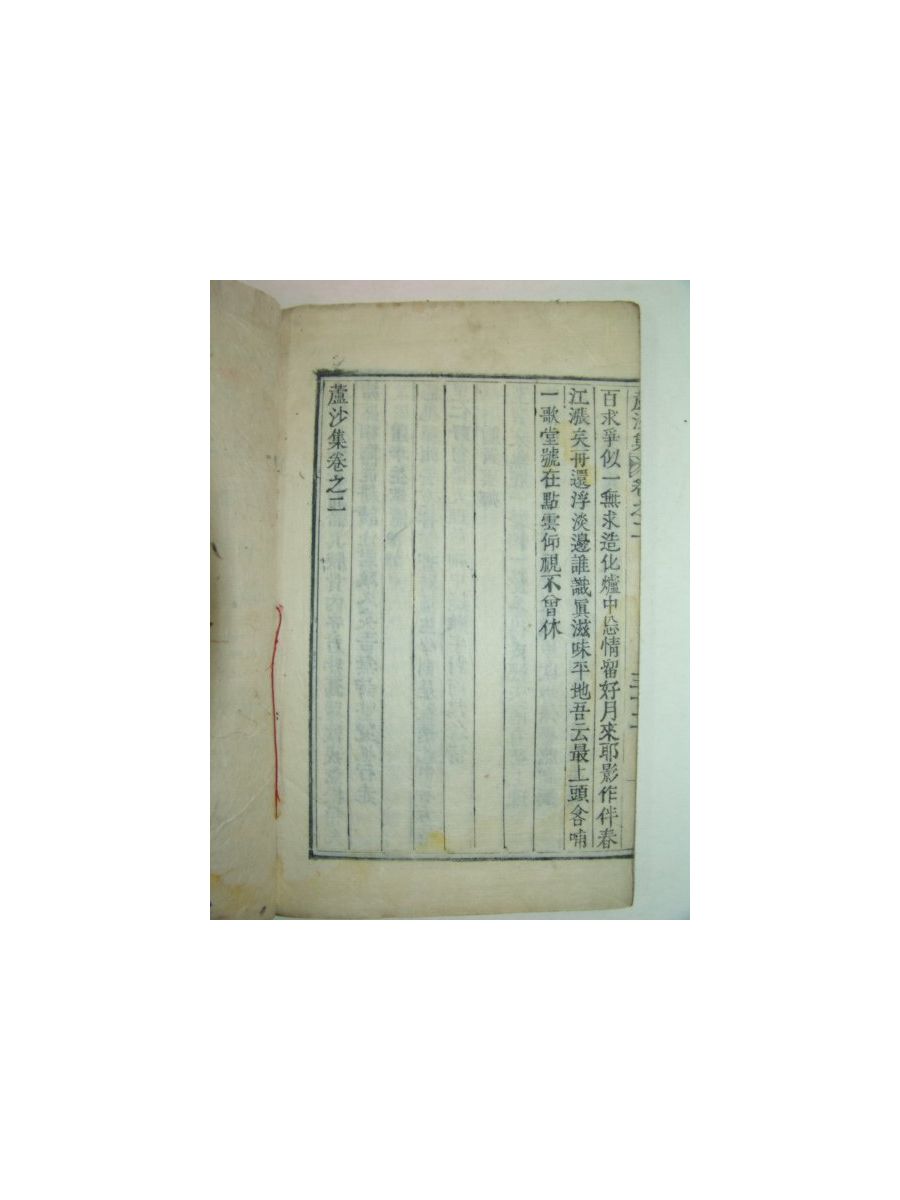 蘆沙集 卷之二 三十二
百求爭似一無求造化爐中恁情留好月來耶影作伴春
江漲矣舟還浮淡邊誰識眞滋味平地吾云最上頭含哺
一歌堂號在點雲仰視不曾休
蘆沙集卷之二